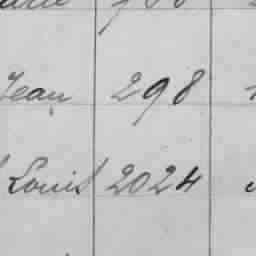 Jean 298
Louis 2024